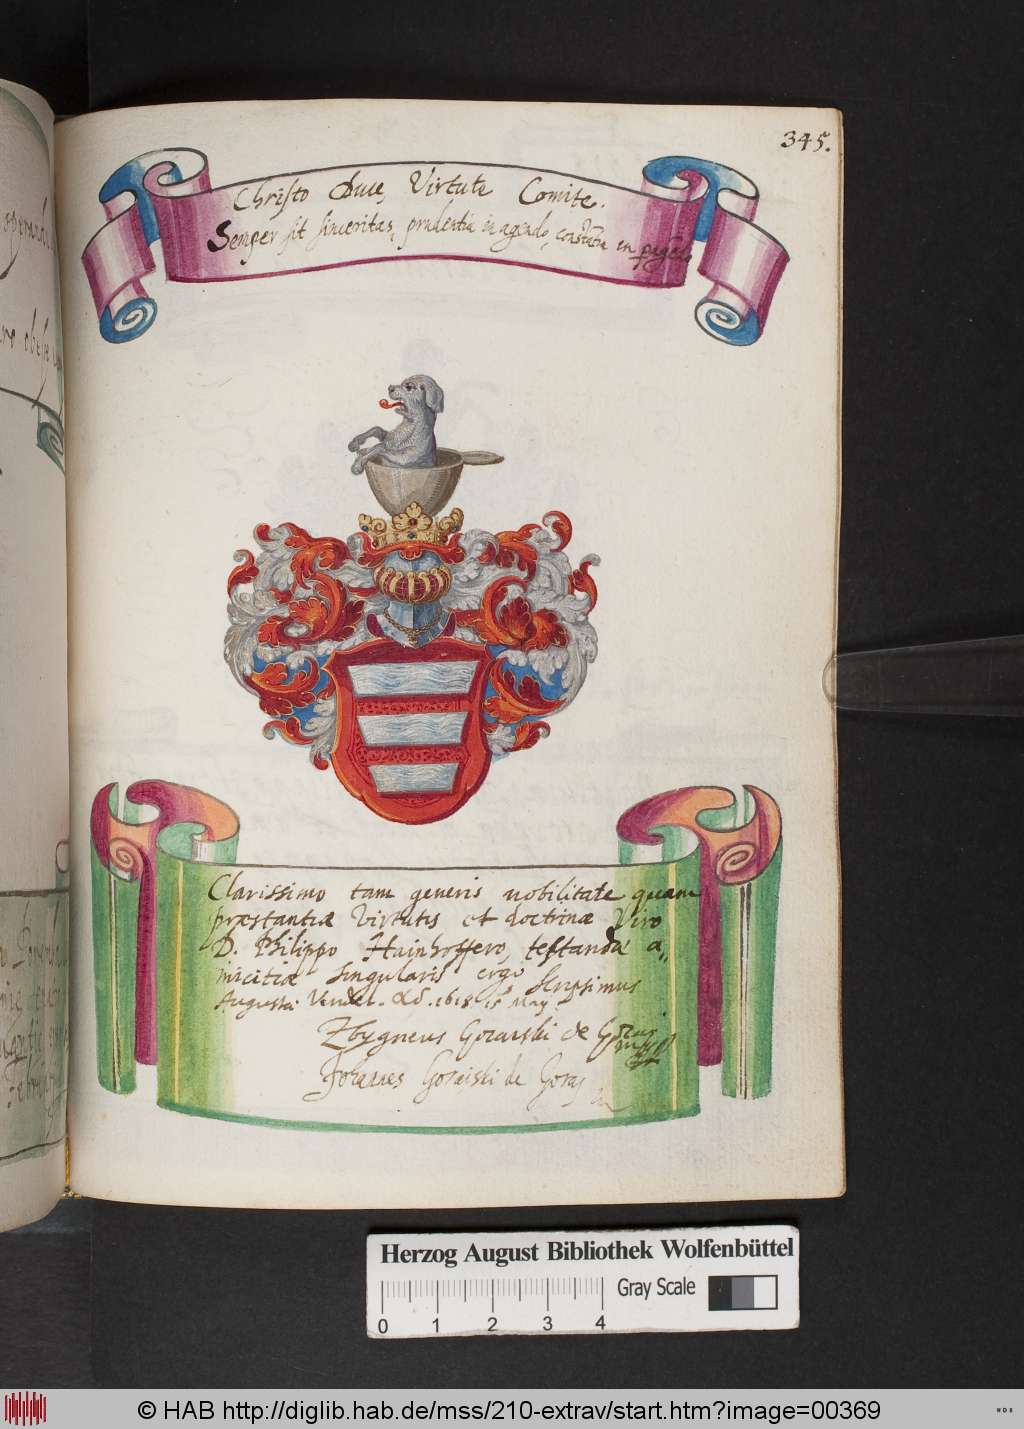 345.
Christo Duce, Virtute Comite.
Semper sit sinceritas, prudentia in agendo, constātia in
Clarissimo tam generis nobilitate quam
præstantia Virtutis et doctrinæ Viro
D. Philippo Hainhoffero, testandæ a„
micitiæ singularis ergo scripsimus
Augustæ Vindel. Ad. 1618. 15 May
Zbygneus Goraiski de Goraj
Johannes Goraiski de Goraj
Herzog August Bibliothek Wolfenbüttel
Gray Scale
0 1 2 3 4
© HAB http://diglib.hab.de/mss/210-extrav/start.htm?image=00369